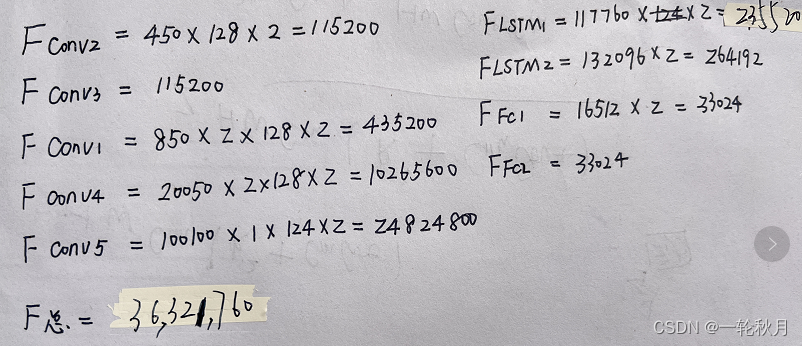 F Conv2 = 450 × 128 × 2 = 115200
F Conv3 = 115200
F Conv1 = 850 × 2 × 128 × 2 = 435200
F Conv4 = 20050 × 2 × 128 × 2 = 10265600
F Conv5 = 100100 × 1 × 124 × 2 = 24824800
F总. = 36,321,760
F LSTM1 = 117760 × 2 = 235520
F LSTM2 = 132096 × 2 = 264192
F FC1 = 16512 × 2 = 33024
F FC2 = 33024
CSDN @一轮秋月